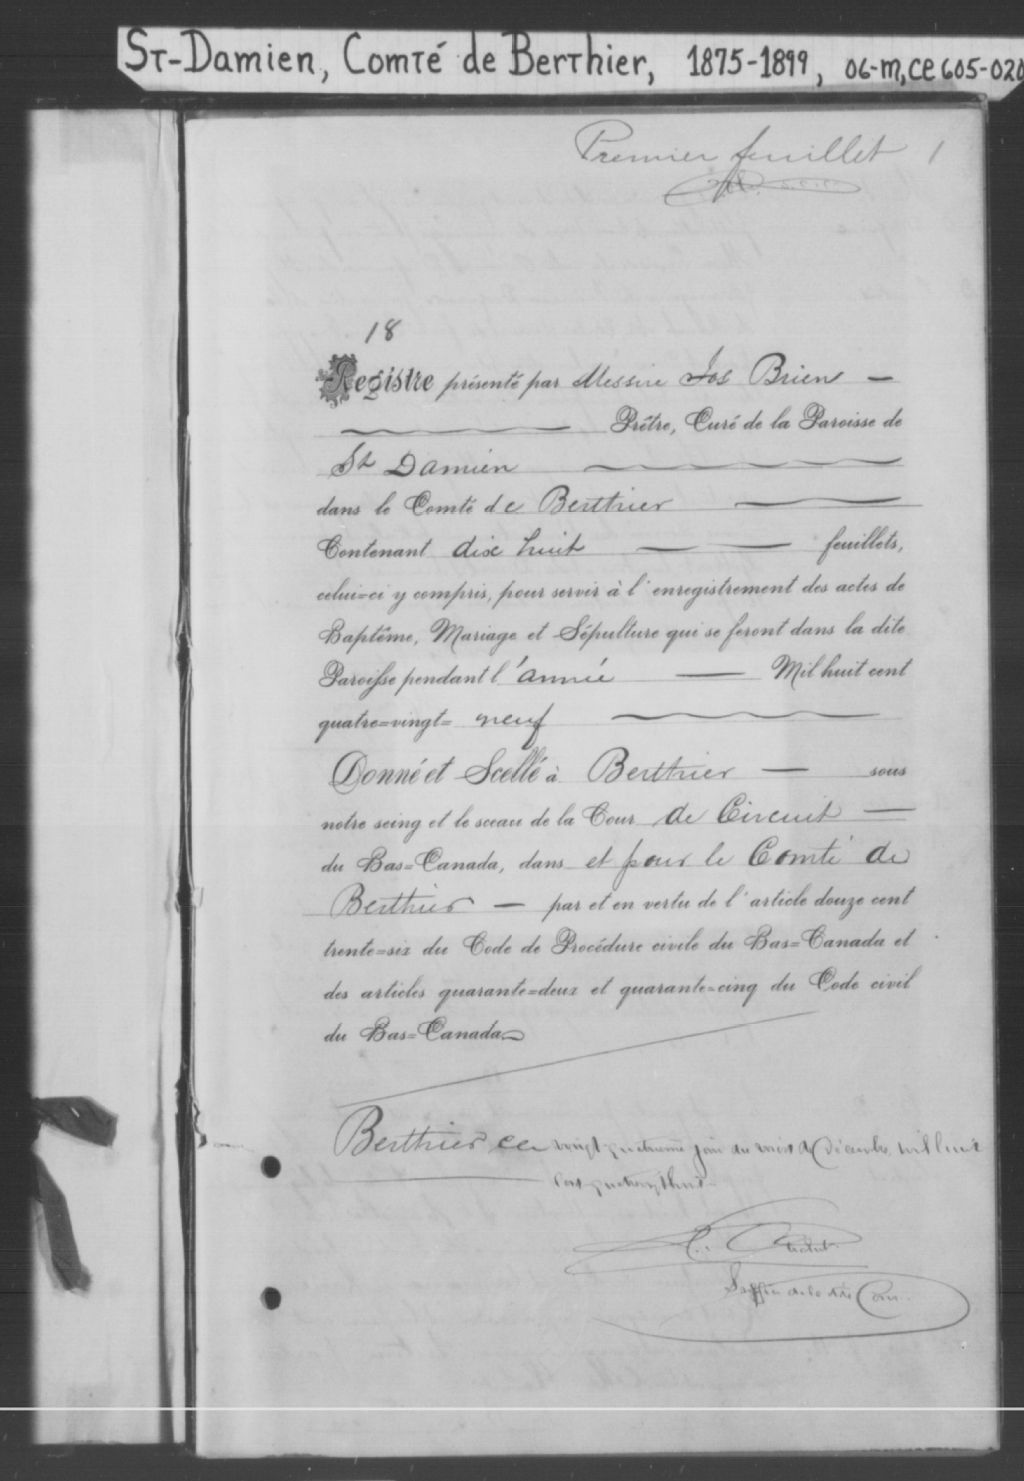 St-Damien, Comté de Berthier, 1875-1899, 06-M,CE605-020
Premier feuillet 1
18
Registre présenté par Messire Jos Brien —
Prêtre, Curé de la Paroisse de
St Damien
dans le Comté de Berthier
Contenant dix huit — — feuillets,
celui=ci y compris, pour servir à l'enregistrement des actes de
Baptême, Mariage et Sépulture qui se feront dans la dite
Paroisse pendant l'année — Mil huit cent
quatre=vingt= neuf
Donné et Scellé à Berthier — sous
notre seing et le sceau de la Cour de Circuit —
du Bas=Canada, dans et pour le Comté de
Berthier — par et en vertu de l'article douze cent
trente=six du Code de Procédure civile du Bas=Canada et
des articles quarante=deux et quarante=cinq du Code civil
du Bas=Canada
Berthier ce vingt quatrième jour du mois de Décembre mil huit
cent